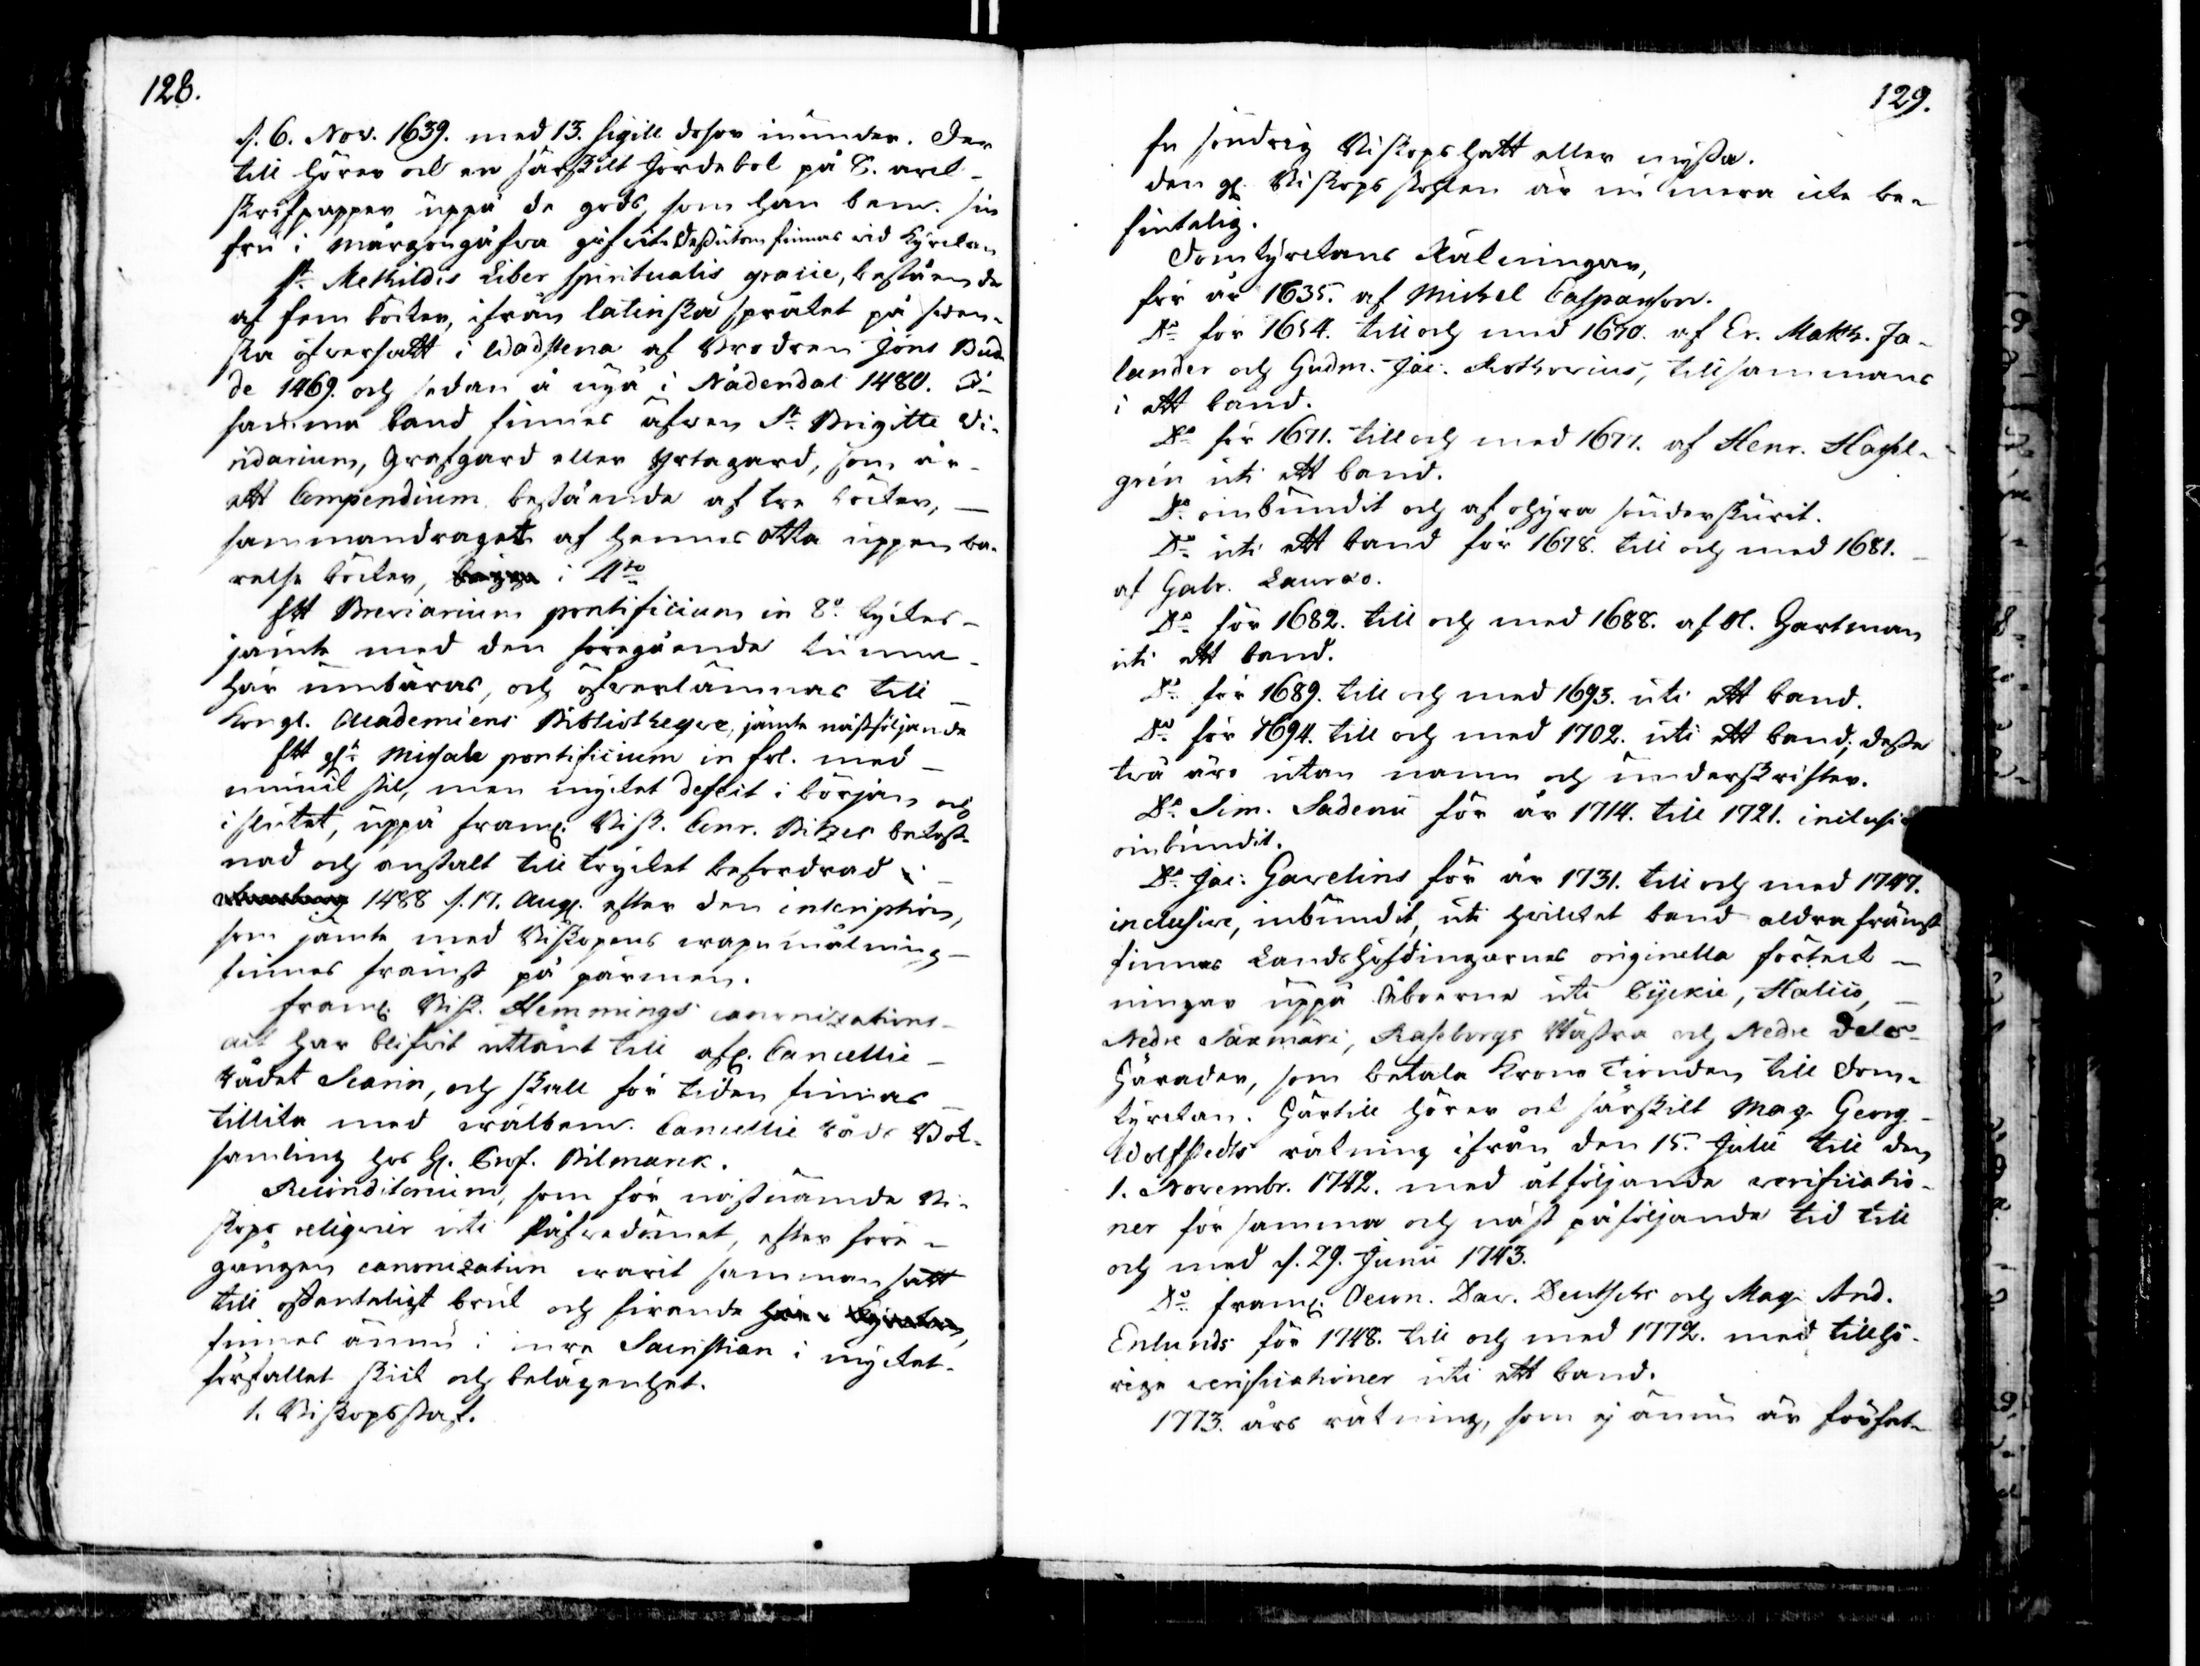 128.
d. 6. Nov. 1639. med 13. sigill derför inunder. Der
till hörer ock en särskilt Jordebok på 8. arck
skrifpapper uppå de gods, som han bem. sin
fru i morgongåfva gifvit. Dessutom finnas vid Kyrckan
St. Methildis Liber spiritualis gracie, bestående
af fem böcker, ifrån latinska språket på sven-
ska öfversatt i Wadstena af Brodren Jöns Bud-
de 1469. och sedan å nyå i Nådendal 1480. I
samma band finnes äfven St. Brigitte Vi-
ridarium, Grässgard eller Yrtagard, som är
ett Compendium bestående af tre böcker,
sammandraget af hennes otta uppenba-
relse böcker, i 4to
Ett Breviarium pontificium in 8o. tyckes
jämte med den föregående kunna
här umbäras, och öfverlämnas till
Kongl. Academiens Bibliotheqve, jämte nästföljande
Ett dto Missale pontificium in fol. med
munck stil, men mycket defect i början och
i slutet, uppå framl. Bisk. Conr. Bitzes bekost-
nad och anstalt till trycket befordrad
1488 d. 17. Aug. efter den inscription,
som jämte med Biskopens wapnmålning
finnes främst på pärmen.
Framl. Bisk. Hemmings canonizations
act har blifvit utlånt till afl. Cancellie
Rådet Scarin, och skall för tiden finnas
tillika med wälbem. Cancellie Råds Bok-
samling hos H. Prof. Bilmarck.
Reconditorium, som för nästnämde Bi-
skops reliqvier uti Påfvedömet, efter före-
gången canonization warit sammansatt
till ostenteligt bruk och firande
finnes ännu i inre Sacristian i mycket
förfallet skick och belägenhet.
1. Biskopsstaf.
129.
En söndrig Biskopshatt eller myssa.
Den gl. Biskops stohlen är nu mera icke be-
fintelig.
Domkyrckans Räkningar,
för år 1635. af Michel Casparson.
Do för 1654. till och med 1670. af Er. Matth. Ja-
lander och Gudm. Jac. Rothovius, tillsammans
i ett band.
Do för 1671. till och med 1677. af Henr. Hassel-
gren uti ett band.
Do oinbundit och af ohyra sönderskurit.
Do uti ett band för 1678. till och med 1681.
af Gabr. Lauræo.
Do för 1682. till och med 1688. af Ol. Hartman
uti ett band.
Do för 1689. till och med 1693. uti ett band.
Do för 1694. till och med 1702. uti ett band; desse
två äro utan namn och underskrifter.
Do Sim. Sadenii för år 1714. till 1721. inclusive
oinbundit.
Do Jac: Gavelins för år 1731. till och med 1747.
inclusive, inbundit, uti hvilcket band aldra främst
finnes Landshöfdingarnes originella förteck-
ningar uppå Åboerne uti Pijckie, Halico,
Nedre Saxmäki, Raseborgs Västra och Nedre Dels
Härader, som betala Krono Tionden till Dom-
kyrckan. Hartill hörer ock särskilt Mag. Georg
Wolfstedts räkning ifrån den 15. Julii till den
1. Novembr. 1742. med åtföljande verificatio-
ner för samma och näst påföljande tid till
och med d. 29. Junii 1743.
Do framl. Oecon. Dav. Deutschs och Mag. And.
Enlunds för 1748. till och med 1772. med tillhö-
rige verificationer uti ett band.
1773. års räkning, som ej ännu är förfat-